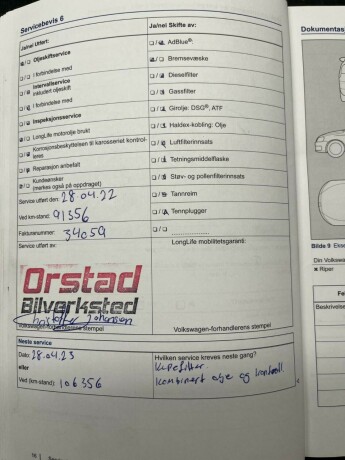 Servicebevis 6
Ja/nei Utført:
Ja/nei Skifte av:
Oljeskiftservice
I forbindelse med
Intervallservice
inkludert oljeskift
I forbindelse med
Inspeksjonsservice
LongLife motorolje brukt
Korrosjonsbeskyttelsen til karosseriet kontrol-
leres
Reparasjon anbefalt
Kundeønsker
(merkes også på oppdraget)
Service utført den: 28.04.22
Ved km-stand: 91356
Fakturanummer: 34059
Service utført av:
Orstad
Bilverksted
Johansen
Volkswagen-forhandlerens stempel
☐/☐ AdBlue®:
Bremsevæske
☐/☐ Dieselfilter
☐/☐ Gassfilter
☐/☐ Girolje: DSQ®, ATF
☐/☐ Haldex-kobling: Olje
Luftfilterinnsats
Tetningsmiddelflaske
Støv- og pollenfilterinnsats
Tannreim
Tennplugger
☐/☐ ....................
LongLife mobilitetsgaranti:
Volkswagen-forhandlerens stempel
Neste service
Dato: 28.04.23
eller
Ved (km-stand): 106356
Hvilken service kreves neste gang?
Kupefilter.
Kombinert olje og kontroll.
Dokumentas
Bilde 9
Din Volksw
× Riper
Beskrivelse